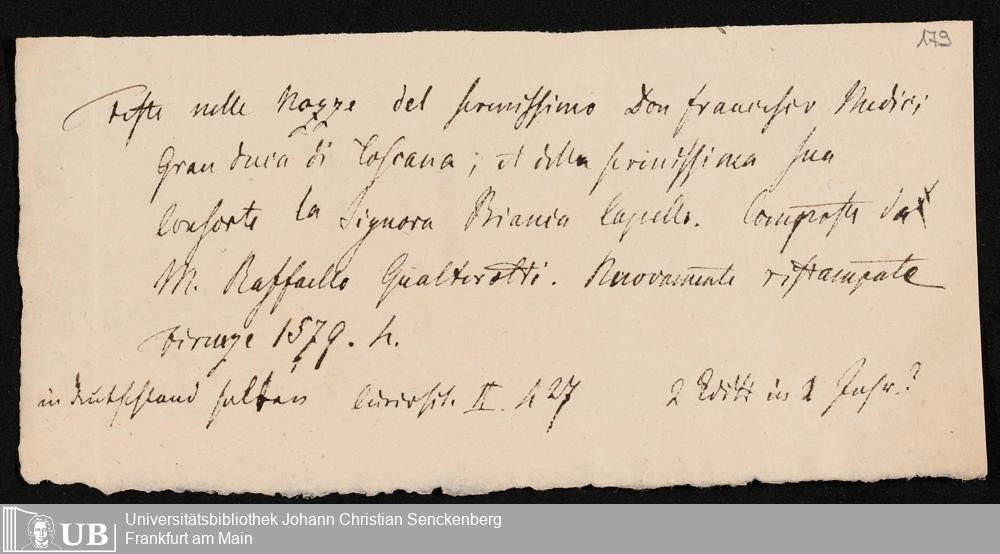 179
Feste nelle Nozze del serenissimo Don Francesco Medici
Gran Duca di Toscana; et della serenissima sua
Consorte la Signora Bianca Capello. Composte da
M. Raffaello Gualterotti. Nuovamente ristampate
Firenze 1579. 4.
in Deutschland selten II. 427 2 Editt in 1 Jahr?
UB
Universitätsbibliothek Johann Christian Senckenberg
Frankfurt am Main